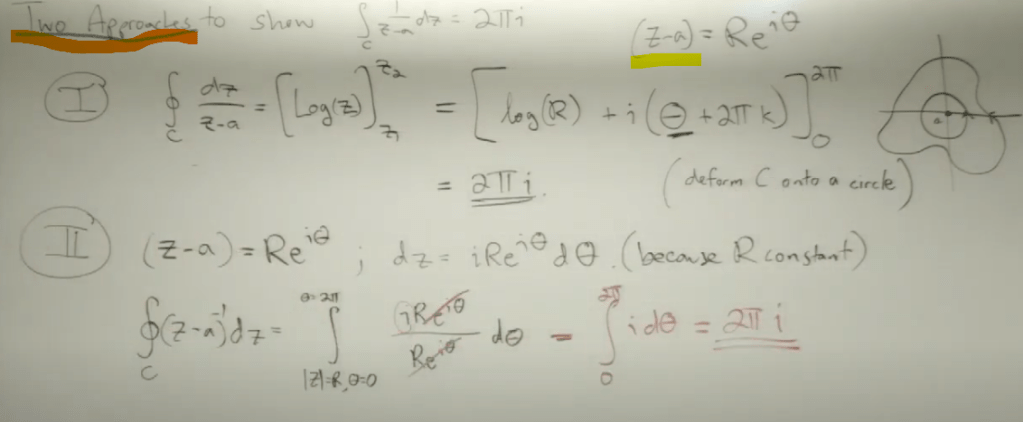 Two Approaches to show ∮_C 1/(z-a) dz = 2πi
(z-a) = Re^{iθ}
I ∮_C dz/(z-a) = [Log(z)]_{z_1}^{z_2} = [log(R) + i(Θ + 2πk)]_0^{2π}
= 2πi. (deform C onto a circle)
a
II (z-a) = Re^{iθ} ; dz = iRe^{iθ} dθ. (because R constant)
∮_C (z-a)^{-1} dz = ∫_{|z|=R, θ=0}^{θ=2π} iRe^{iθ}/Re^{iθ} dθ = ∫_0^{2π} i dθ = 2πi